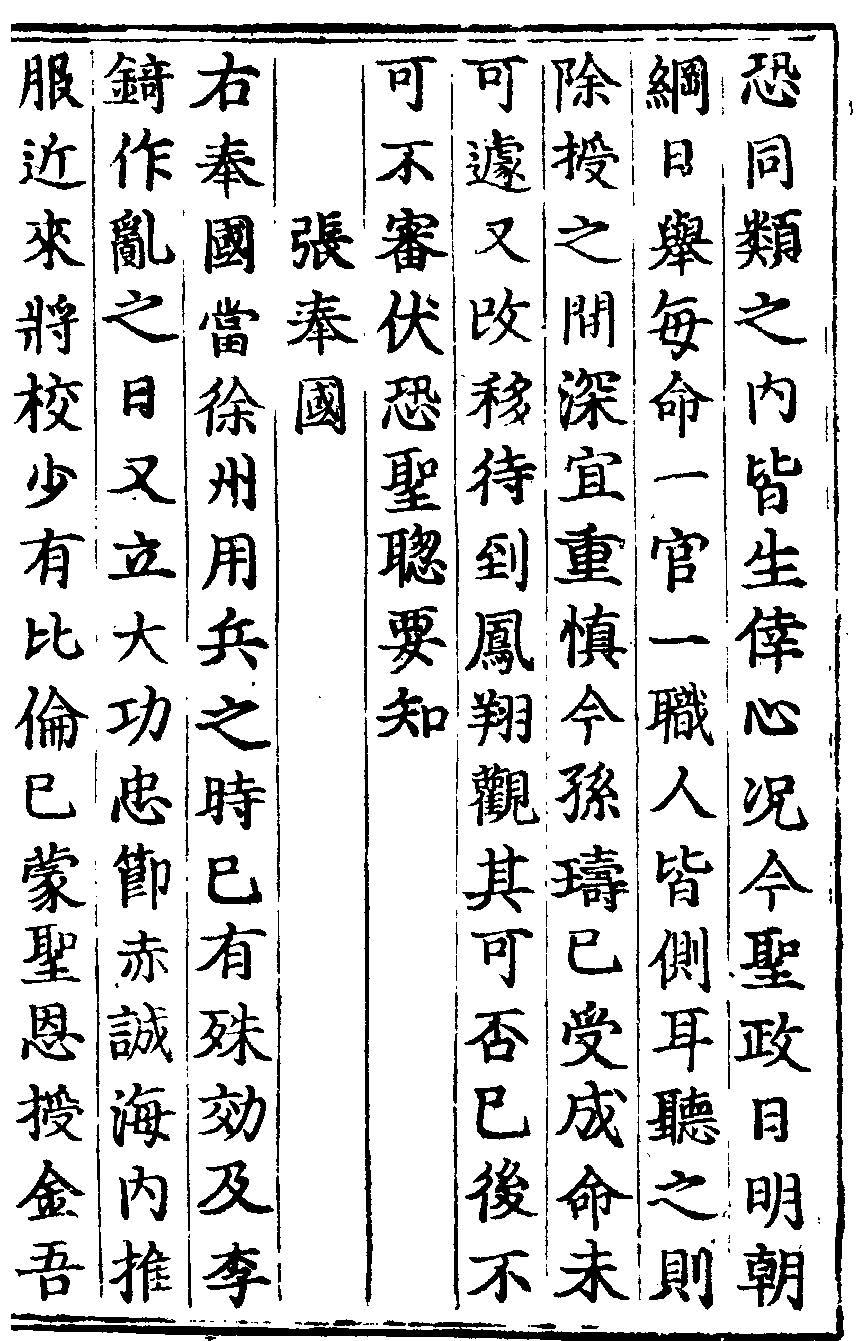 恐同類之内皆生倖心况今聖政日明朝
綱日舉每命一官一職人皆側耳聽之則
除授之間深宜重慎今孫璹已受成命未
可遽又改移待到鳳翔觀其可否已後不
可不審伏恐聖聦要知
張奉國
右奉國當徐州用兵之時已有殊効及李
錡作亂之日又立大功忠節赤誠海内推
服近來將校少有比倫已蒙聖恩授金吾